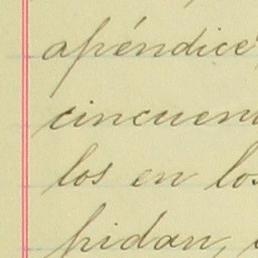 apéndice
cincuen
los en los
pidan,